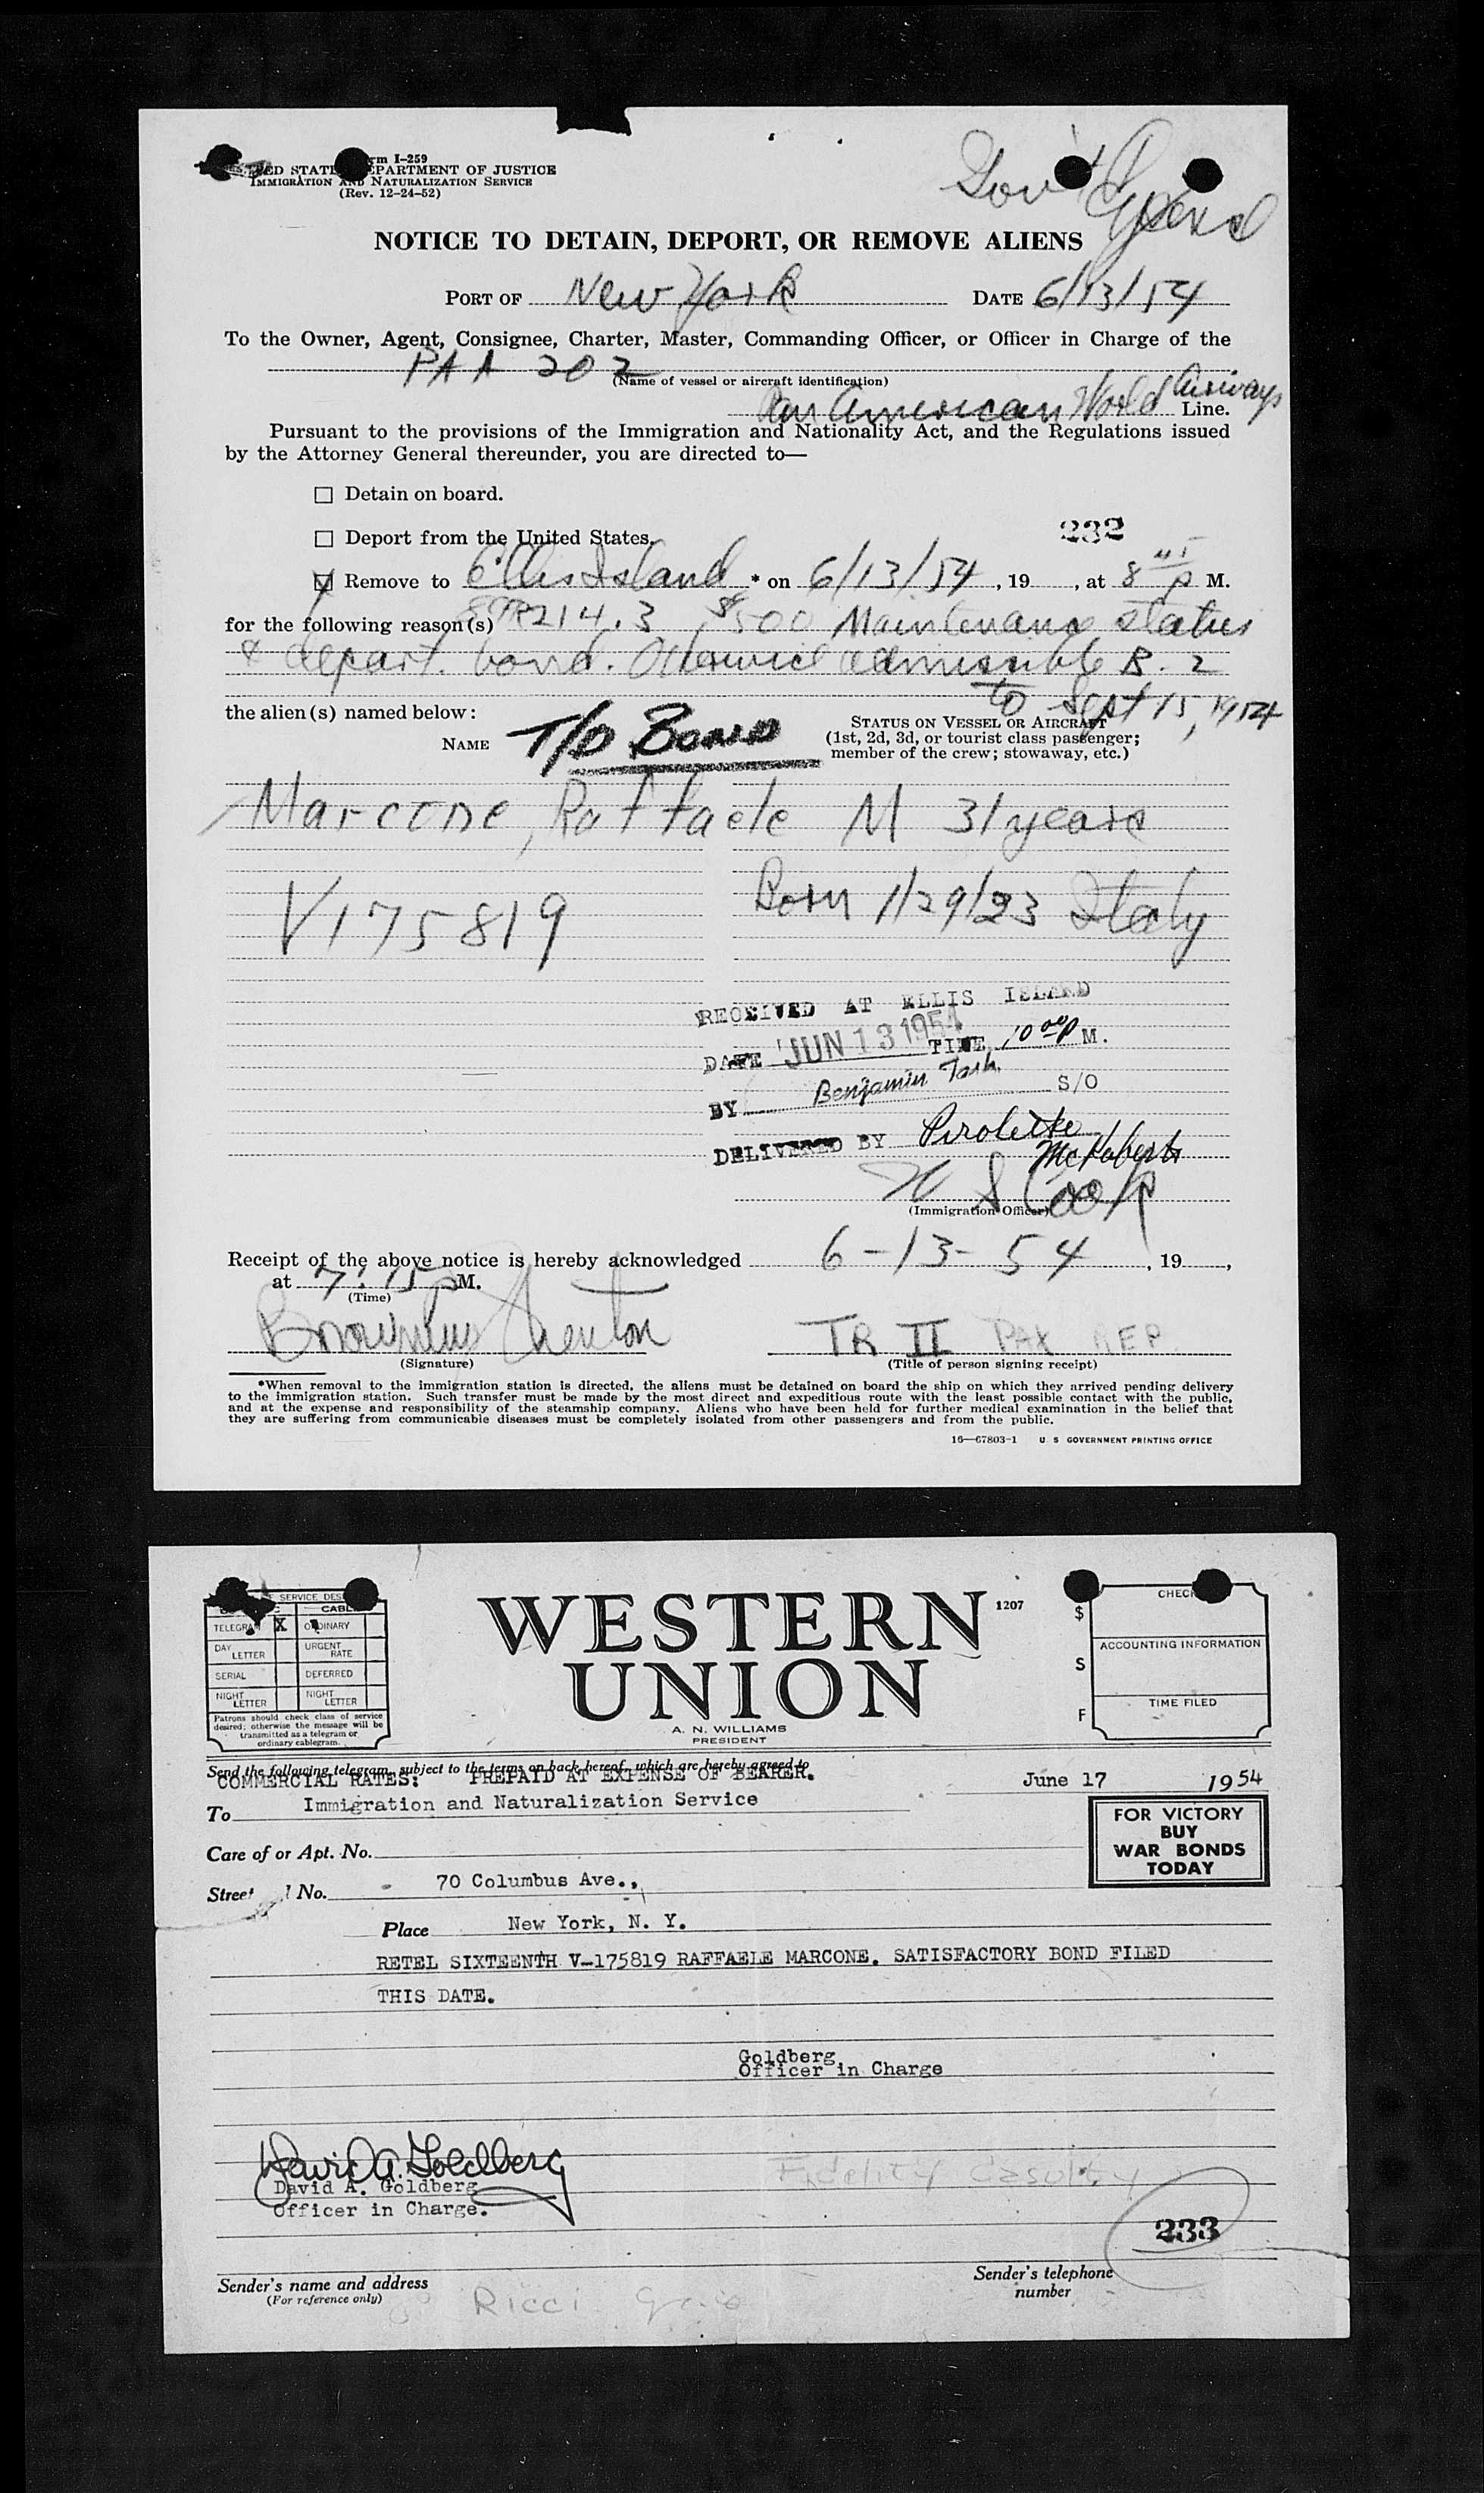 Form I-259
UNITED STATES DEPARTMENT OF JUSTICE
IMMIGRATION AND NATURALIZATION SERVICE
(Rev. 12-24-52)
Gov't Expense
NOTICE TO DETAIN, DEPORT, OR REMOVE ALIENS
PORT OF New York DATE 6/13/54
To the Owner, Agent, Consignee, Charter, Master, Commanding Officer, or Officer in Charge of the
PAA 202
(Name of vessel or aircraft identification)
Pan American World Airways Line.
Pursuant to the provisions of the Immigration and Nationality Act, and the Regulations issued
by the Attorney General thereunder, you are directed to—
☐ Detain on board.
☐ Deport from the United States.
232
☑ Remove to Ellis Island * on 6/13/54, 19__, at 8 45 P M.
for the following reason(s) 8CFR214.3 $500 Maintenance status
& depart. bond. Otherwise admissible B-2
to Sept 15, 1954
the alien(s) named below:
NAME
T/O BOND
STATUS ON VESSEL OR AIRCRAFT
(1st, 2d, 3d, or tourist class passenger;
member of the crew; stowaway, etc.)
Marcone, Raffaele M 31 years
V175819 Born 1/29/23 Italy
RECEIVED AT ELLIS ISLAND
DATE JUN 13 1954 TIME 10 00 P M.
BY Benjamin S/O
DELIVERED BY Pirolette
McRoberts
S Cook
(Immigration Officer)
Receipt of the above notice is hereby acknowledged 6-13-54, 19__,
at 7:15 P M.
(Time)
(Signature)
TR II PAX REP.
(Title of person signing receipt)
*When removal to the immigration station is directed, the aliens must be detained on board the ship on which they arrived pending delivery
to the immigration station. Such transfer must be made by the most direct and expeditious route with the least possible contact with the public,
and at the expense and responsibility of the steamship company. Aliens who have been held for further medical examination in the belief that
they are suffering from communicable diseases must be completely isolated from other passengers and from the public.
16—67803-1 U S GOVERNMENT PRINTING OFFICE
SERVICE DES
CABLE
TELEGRAM X ORDINARY
DAY LETTER URGENT RATE
SERIAL DEFERRED
NIGHT LETTER NIGHT LETTER
Patrons should check class of service
desired; otherwise the message will be
transmitted as a telegram or
ordinary cablegram.
WESTERN
UNION
1207
A. N. WILLIAMS
PRESIDENT
$
S
F
CHECK
ACCOUNTING INFORMATION
TIME FILED
Send the following telegram, subject to the terms on back hereof, which are hereby agreed to
COMMERCIAL RATES: PREPAID AT EXPENSE OF BEARER.
June 17 1954
To Immigration and Naturalization Service
FOR VICTORY
BUY
WAR BONDS
TODAY
Care of or Apt. No.
Street No. 70 Columbus Ave.,
Place New York, N. Y.
RETEL SIXTEENTH V-175819 RAFFAELE MARCONE. SATISFACTORY BOND FILED
THIS DATE.
Goldberg
Officer in Charge
David A. Goldberg
David A. Goldberg
Officer in Charge.
Fidelity Casulty
233
Sender's name and address
(For reference only)
Sender's telephone
number
Ricci